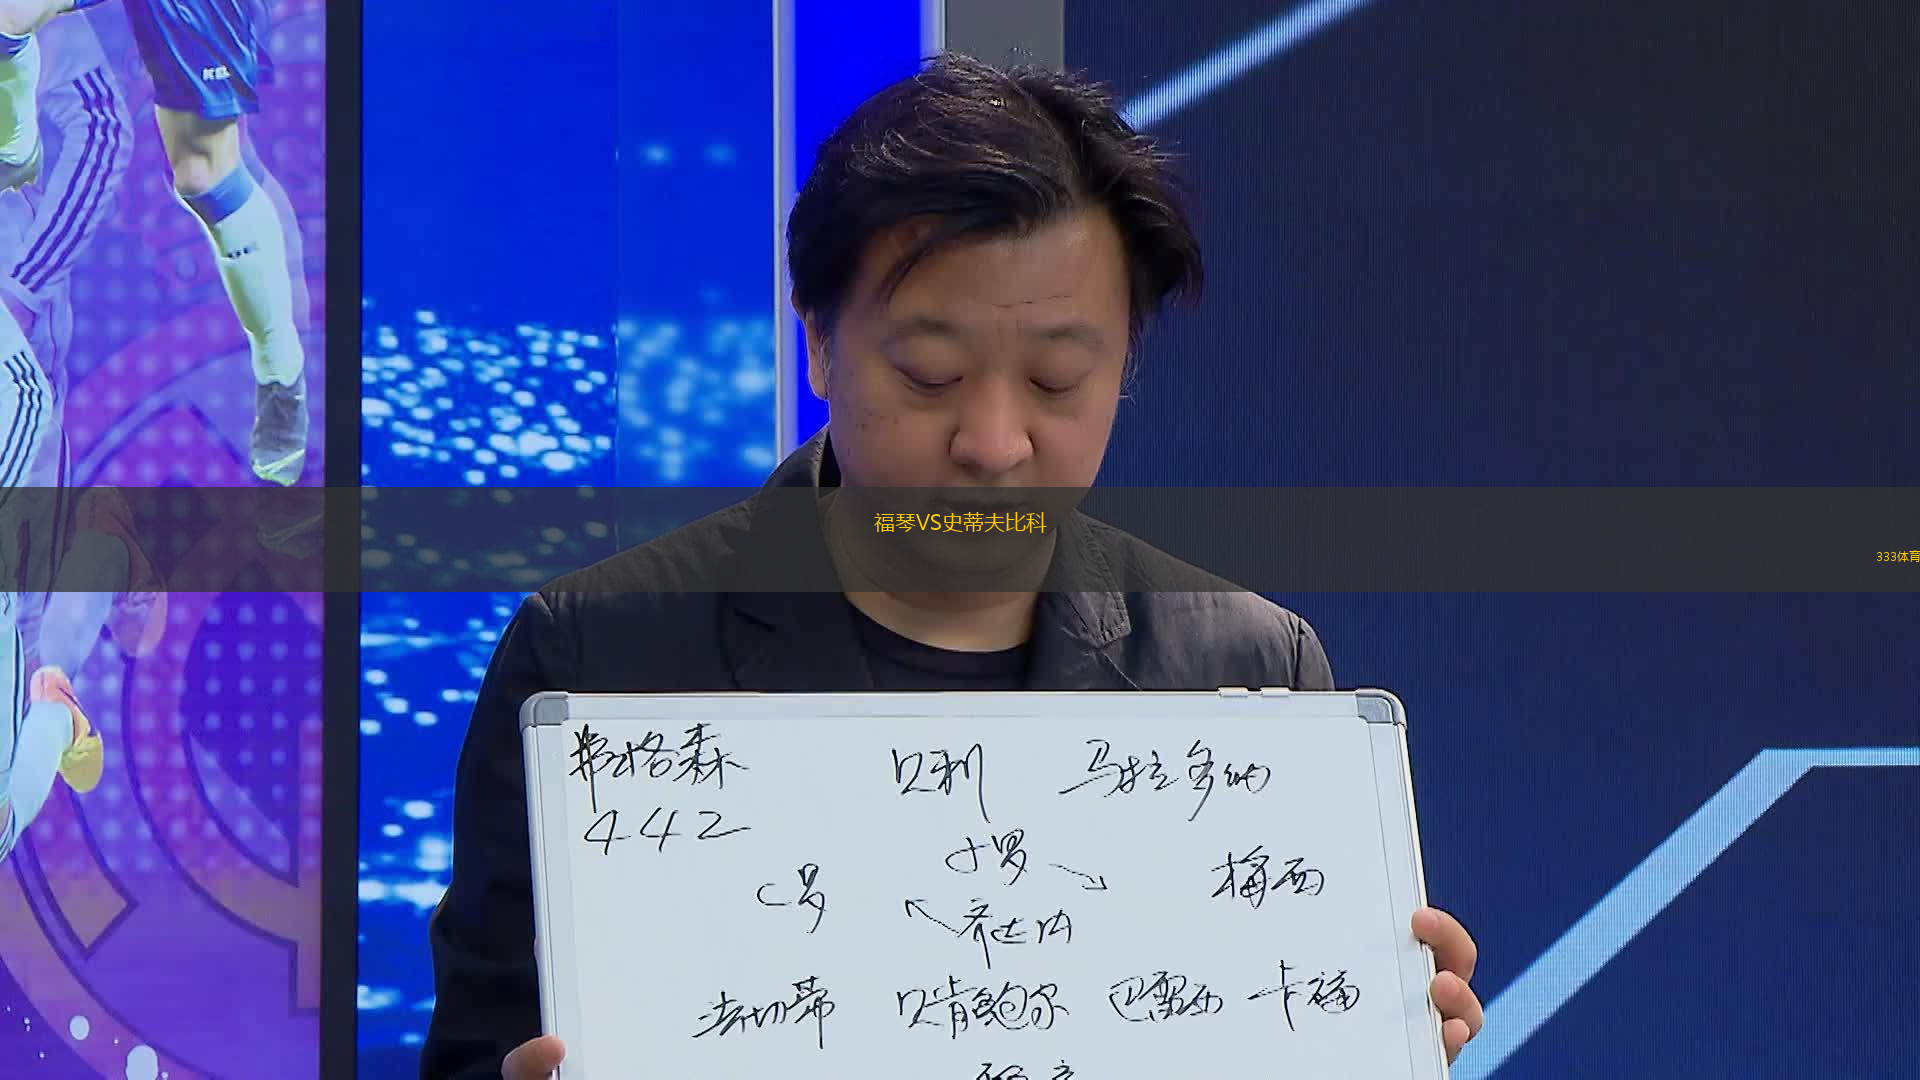 福琴VS史蒂夫比科
333体育
弗格森 贝利 马拉多纳
442
小罗
C罗 梅西
齐达内
法切蒂 贝肯鲍尔 巴雷西 卡福